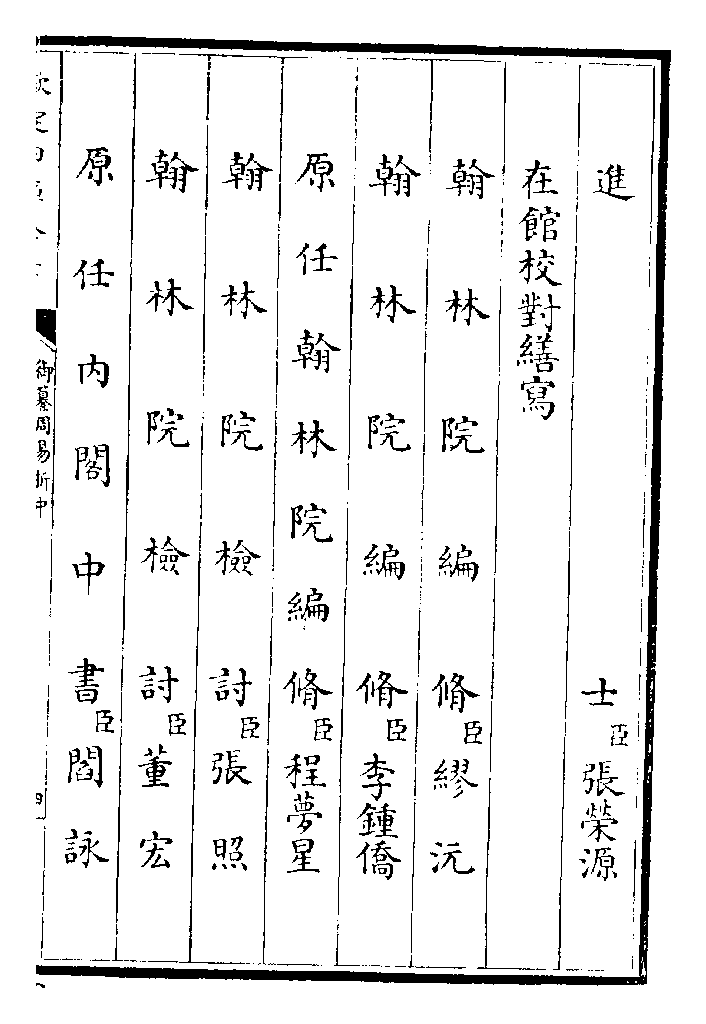 進士臣張榮源
在館校對繕寫
翰林院編脩臣繆沅
翰林院編脩臣李鍾僑
原任翰林院編脩臣程夢星
翰林院檢討臣張照
翰林院檢討臣董宏
原任内閣中書臣閻詠
御纂周易折中
四